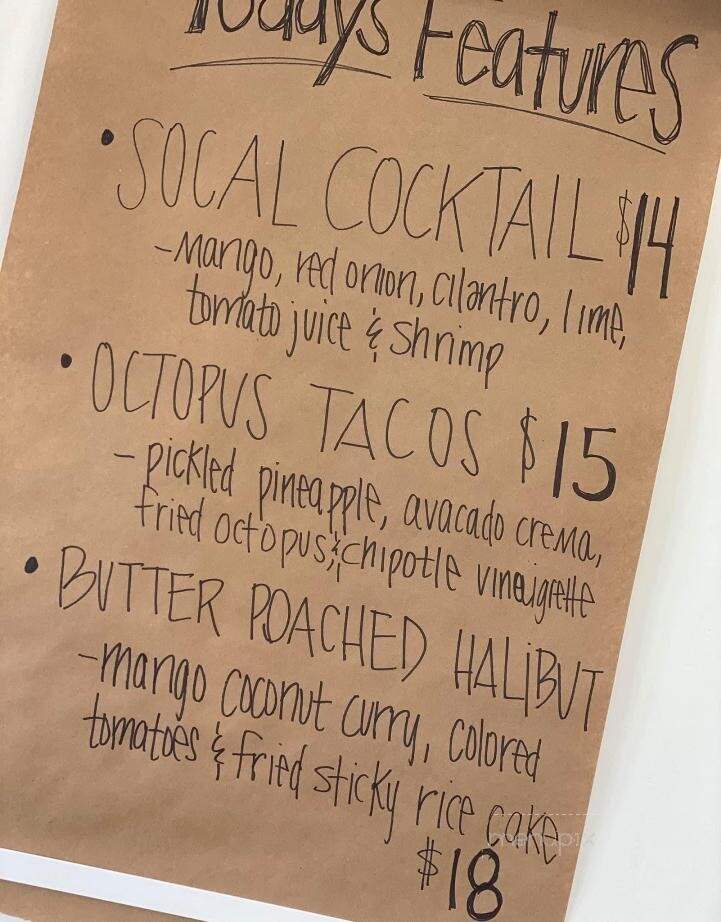 Todays Features
• SOCAL COCKTAIL $14
- Mango, red onion, cilantro, lime,
tomato juice & shrimp
• OCTOPUS TACOS $15
- pickled pineapple, avacado crema,
fried octopus, & chipotle vinaigrette
• BUTTER POACHED HALIBUT
- mango coconut curry, colored
tomatoes & fried sticky rice cake
$18